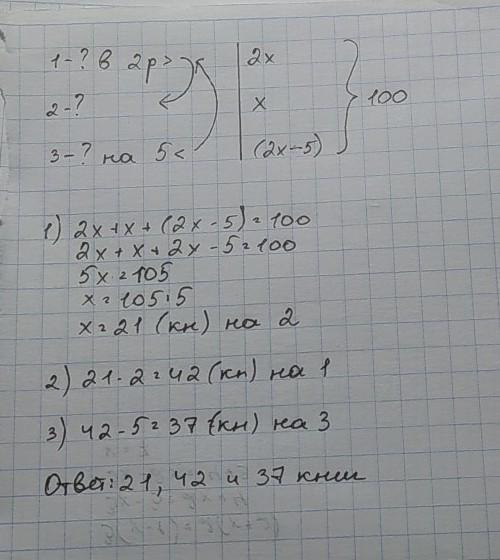 1-? в 2р> 2x
2-? x 100
3-? на 5< (2x-5)
1) 2x+x+(2x-5)=100
2x+x+2x-5=100
5x=105
x=105:5
x=21 (кн) на 2
2) 21·2=42 (кн) на 1
3) 42-5=37 (кн) на 3
Ответ: 21, 42 и 37 книг